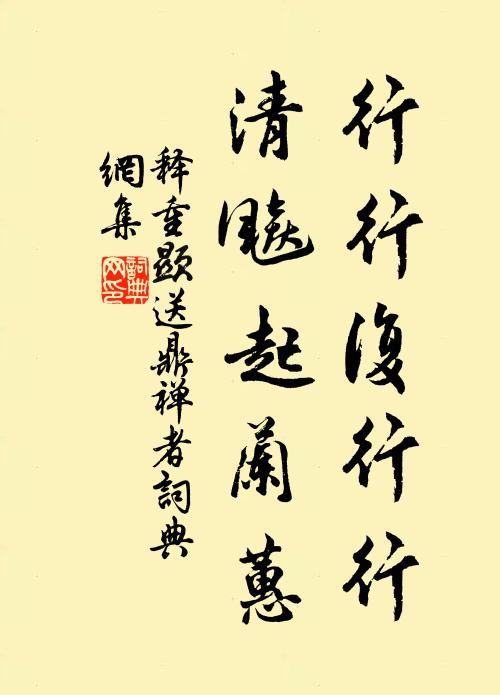 行行復行行
清飈起蘭蕙
释重顯送鼎禅者詞典
網集
詞典
网印